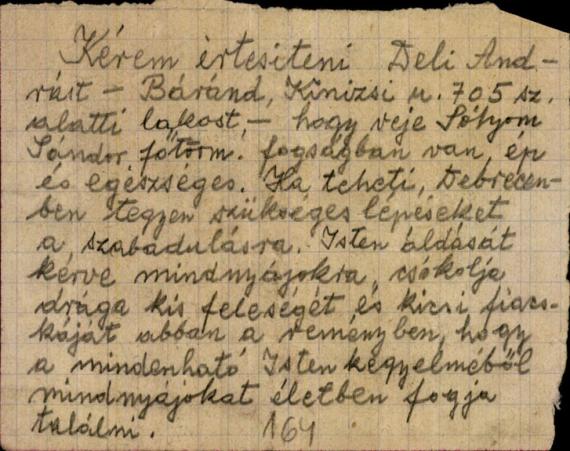 Kérem értesíteni Deli And-
rást - Báránd, Kinizsi u. 705 sz.
alatti lakost, - hogy veje Sólyom
Sándor főtörm. fogságban van, ép
és egészséges. Ha teheti, Debrecen-
ben tegyen szükséges lépéseket
a szabadulásra. Isten áldását
kérve mindnyájokra, csókolja
drága kis feleségét és kicsi fiacs-
káját abban a reményben, hogy
a mindenható Isten kegyelméből
mindnyájokat életben fogja
találni. 164